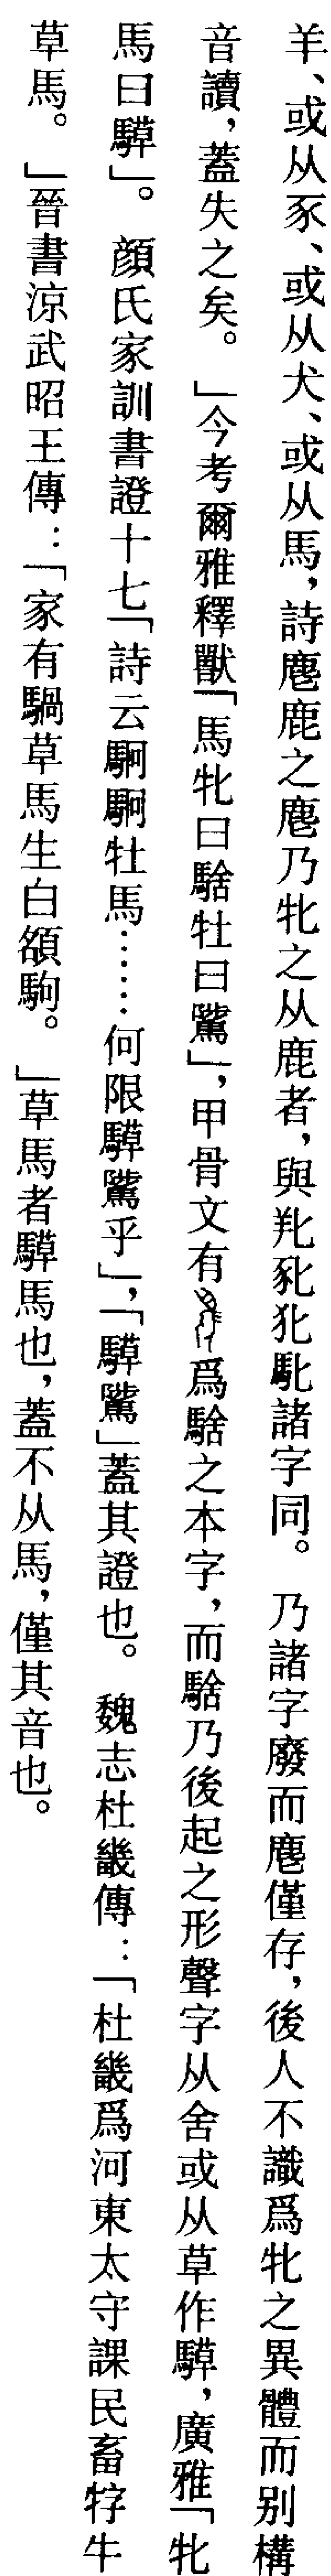 羊、或从豕、或从犬、或从馬，詩麀鹿之麀乃牝之从鹿者，與𦍩豝犯馲諸字同。乃諸字廢而麀僅存，後人不識爲牝之異體而別構
音讀，蓋失之矣。」今考爾雅釋獸「馬牝曰騇牡曰騭」，甲骨文有爲騇之本字，而騇乃後起之形聲字从舍或从草作騲，廣雅「牝
馬曰騲」。顏氏家訓書證十七「詩云駉駉牡馬……何限騲騭乎」，「騲騭」蓋其證也。魏志杜畿傳：「杜畿爲河東太守課民畜牸牛
草馬。」晉書涼武昭王傳：「家有騧草馬生白額駒。」草馬者騲馬也，蓋不从馬，僅其音也。